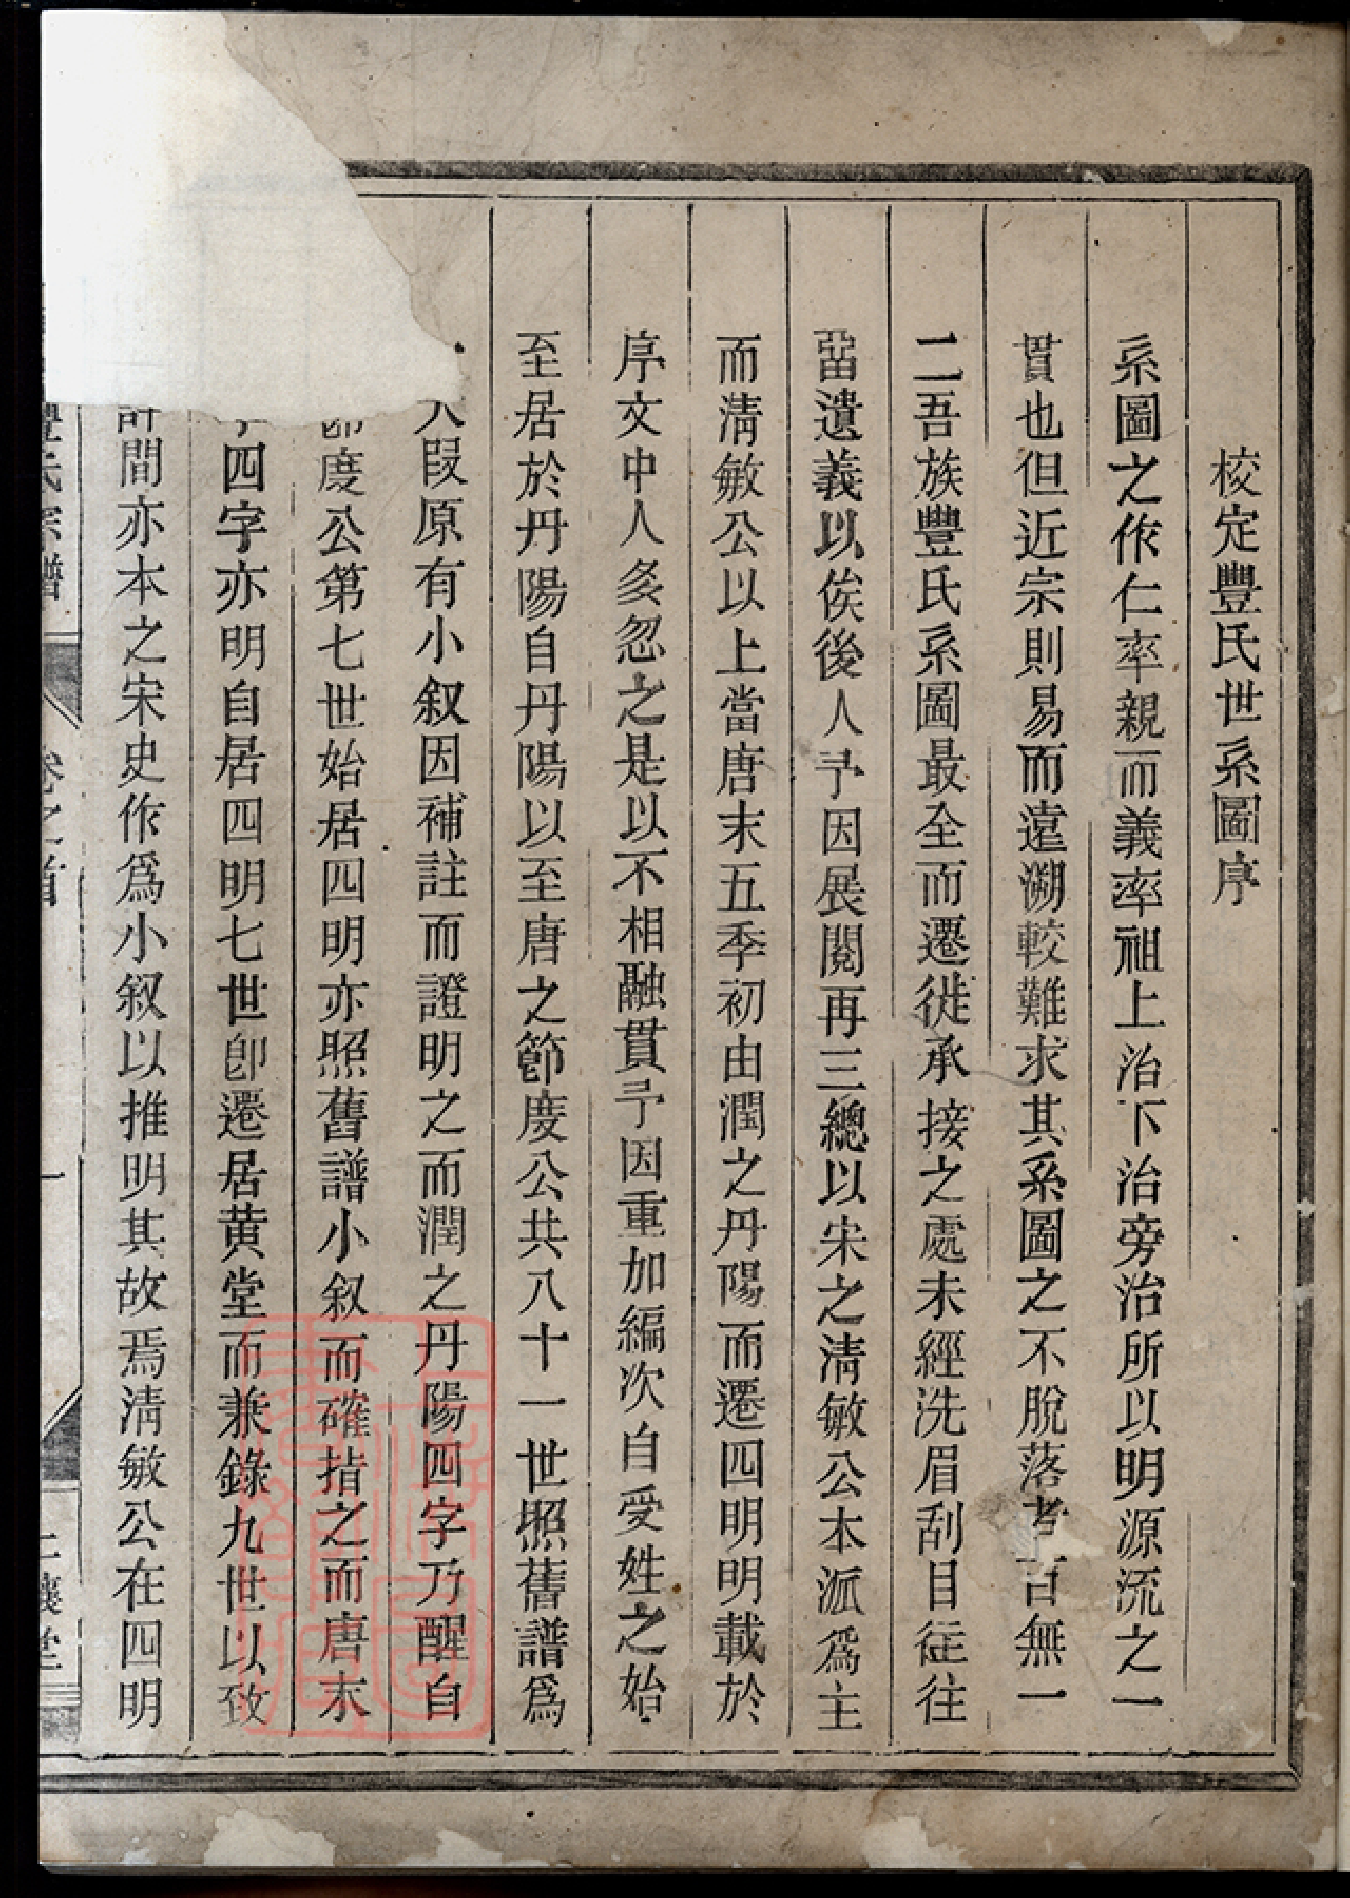 校定豐氏世系圖序
系圖之作仁率親而義率祖上治下治旁治所以明源流之一
貫也但近宗則易而遠溯較難求其系圖之不脫落者百無一
二吾族豐氏系圖最全而遷徙承接之處未經洗眉刮目往往
畱遺義以俟後人予因展閱再三總以宋之淸敏公本派爲主
而淸敏公以上當唐末五季初由潤之丹陽而遷四明明載於
序文中人多忽之是以不相融貫予因重加編次自受姓之始
至居於丹陽自丹陽以至唐之節度公共八十一世照舊譜爲
八段原有小叙因補註而證明之而潤之丹陽四字乃醒自
節度公第七世始居四明亦照舊譜小叙而確指之而唐末
四字亦明自居四明七世卽遷居黄堂而兼錄九世以致
許間亦本之宋史作爲小叙以推明其故焉淸敏公在四明
豐氏宗譜
卷之首
一